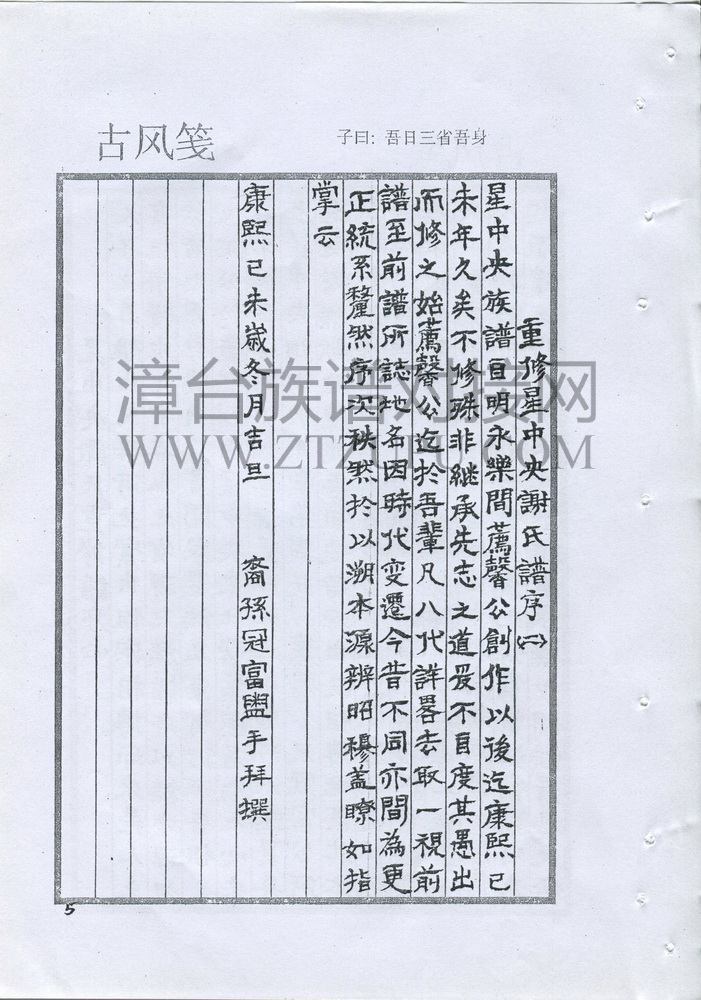 古风笺
子曰：吾日三省吾身
重修星中央謝氏譜序(一)
星中央族譜自明永樂間薦馨公創作以後迄康熙已
未年久矣不修殊非継承先志之道爰不自度其愚出
而修之始薦馨公迄於吾輩凡八代詳畧去取一視前
譜至前譜所誌地名因時代变遷今昔不同亦間為更
正統系釐然序次秩然於以溯本源辨昭穆蓋瞭如指
掌云
康熙已未歲冬月吉旦 裔孫冠富盥手拜撰
漳台族谱对接网
WWW.ZTZUPU.COM
5